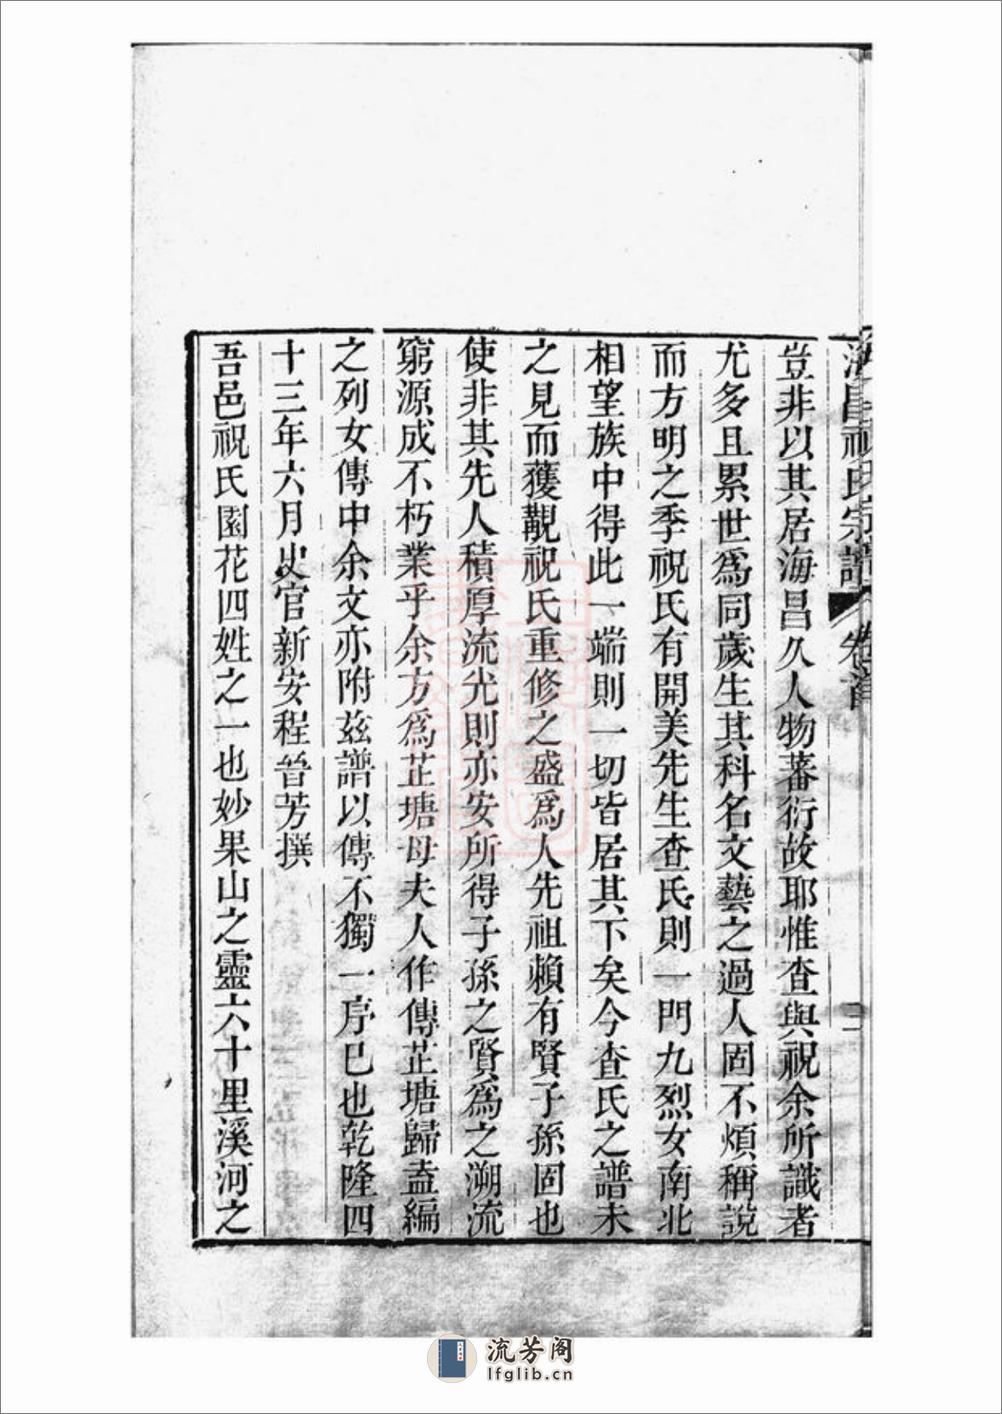 海昌祝氏宗譜 卷首 二
豈非以其居海昌久人物蕃衍故耶惟查與祝余所識者
尤多且累世為同歲生其科名文藝之過人固不煩稱說
而方明之季祝氏有開美先生查氏則一門九烈女南北
相望族中得此一端則一切皆居其下矣今查氏之譜未
之見而獲觀祝氏重修之盛爲人先祖賴有賢子孫固也
使非其先人積厚流光則亦安所得子孫之賢為之溯流
窮源成不朽業乎余方爲芷塘母夫人作傳芷塘歸盍編
之列女傳中余文亦附茲譜以傳不獨一序已也乾隆四
十三年六月史官新安程晉芳撰
吾邑祝氏園花四姓之一也妙果山之靈六十里溪河之
流芳阁
lfglib.cn